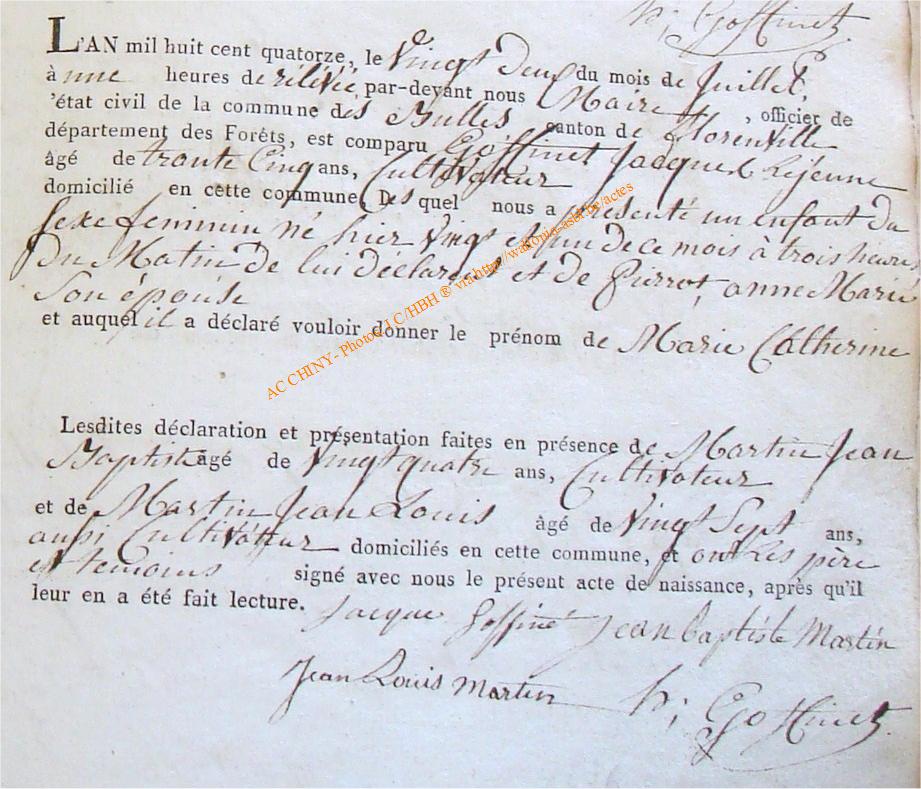 h; Goffinet
L'AN mil huit cent quatorze, le vingt deux du mois de Juillet,
à une heures de rélévée par-devant nous Maire, officier de
'état civil de la commune des Bulles canton de Florenville
département des Forêts, est comparu Goffinet Jacque Lejeune
âgé de trante Cinq ans, Cultivateur
domicilié en cette commune, Les quel nous a présenté un enfant du
sexe feminin né hier vingt et un de ce mois à trois heures
du Matin de lui déclarent et de Pierrot, anne Marie
Son épouse
et auquel il a déclaré vouloir donner le prénom de Marie Catherine
AC CHINY - Photos J C/HBH ® via http://wallonia-asbl.be/actes
Lesdites déclaration et présentation faites en présence de Martin Jean
Baptiste âgé de vingt quatre ans, Cultivateur
et de Martin Jean Louis âgé de vingt Sept ans,
aussi Cultivateur domiciliés en cette commune, et ont Les père
et temoins signé avec nous le présent acte de naissance, après qu'il
leur en a été fait lecture.
Jacque Goffiné Jean baptiste Martin
Jean Louis Martin h; Goffinet